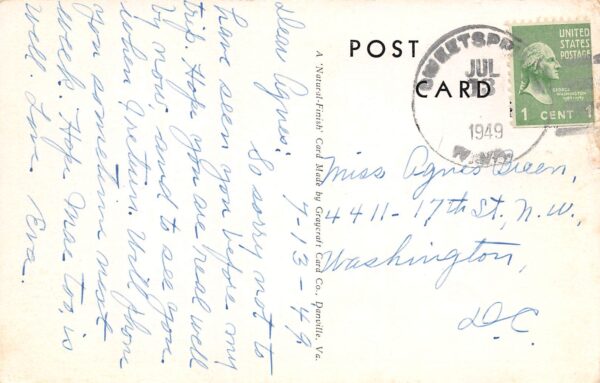 7-13-49
Dear Agnes:
So sorry not to
have seen you before my
trip. Hope you are real well
by now and to see you
when I return. Will phone
you sometime next
week. Hope Mae too, is
well. Love, Eva.
A 'Natural-Finish' Card Made by Graycraft Card Co., Danville, Va.
POST
CARD
JUL
1949
W.VA.
UNITED
STATES
POSTAGE
GEORGE
WASHINGTON
1 CENT 1
Miss Agnes Green,
4411-17th St., N.W.,
Washington,
D.C.